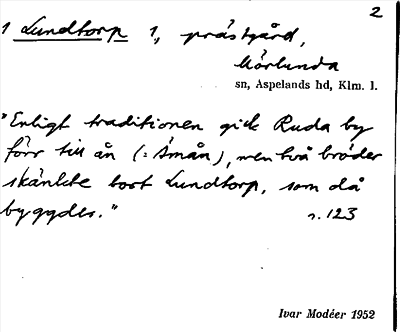 2
1 Lundtorp 1, prästgård,
Mörlunda
sn, Aspelands hd, Klm. l.
"Enligt traditionen gick Ruda by
förr till ån (: Åmån), men två bröder
skänkte bort Lundtorp, som då
byggdes." s. 123
Ivar Modéer 1952